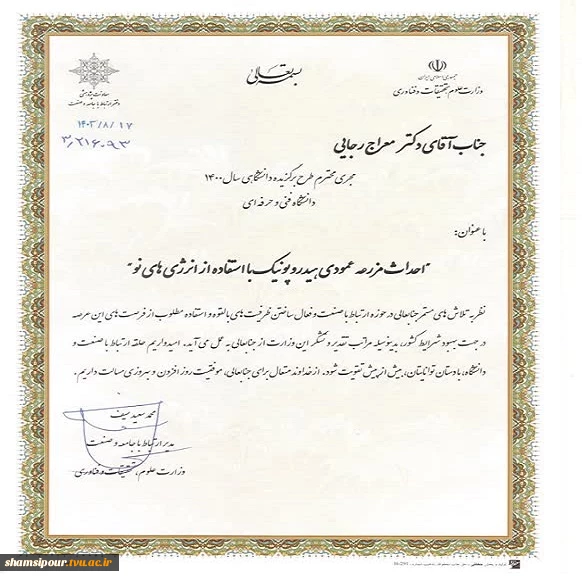 بسمه تعالی
جمهوری اسلامی ایران
وزارت علوم، تحقیقات و فناوری
معاونت پژوهشی
دفتر ارتباط با جامعه و صنعت
۱۴۰۳/۸/۱۷
۳/۲۱۶۰۹۳
جناب آقای دکتر معراج رجایی
مجری محترم طرح برگزیده دانشگاهی سال ۱۴۰۰
دانشگاه فنی و حرفه ای
با عنوان:
"احداث مزرعه عمودی هیدروپونیک با استفاده از انرژی های نو"
نظر به تلاش های مستمر جنابعالی در حوزه ارتباط با صنعت و فعال ساختن ظرفیت های بالقوه و استفاده مطلوب از فرصت های این عرصه
در جهت بهبود شرایط کشور، بدینوسیله مراتب تقدیر و تشکر این وزارت از جنابعالی به عمل می آید. امیدواریم حلقه ارتباط با صنعت و
دانشگاه، با دستان توانایتان، بیش از پیش تقویت شود. از خداوند متعال برای جنابعالی، موفقیت روز افزون و بهروزی مسالت داریم.
محمد سعید سیف
مدیر ارتباط با جامعه و صنعت
وزارت علوم، تحقیقات و فناوری
shamsipour.tvu.ac.ir